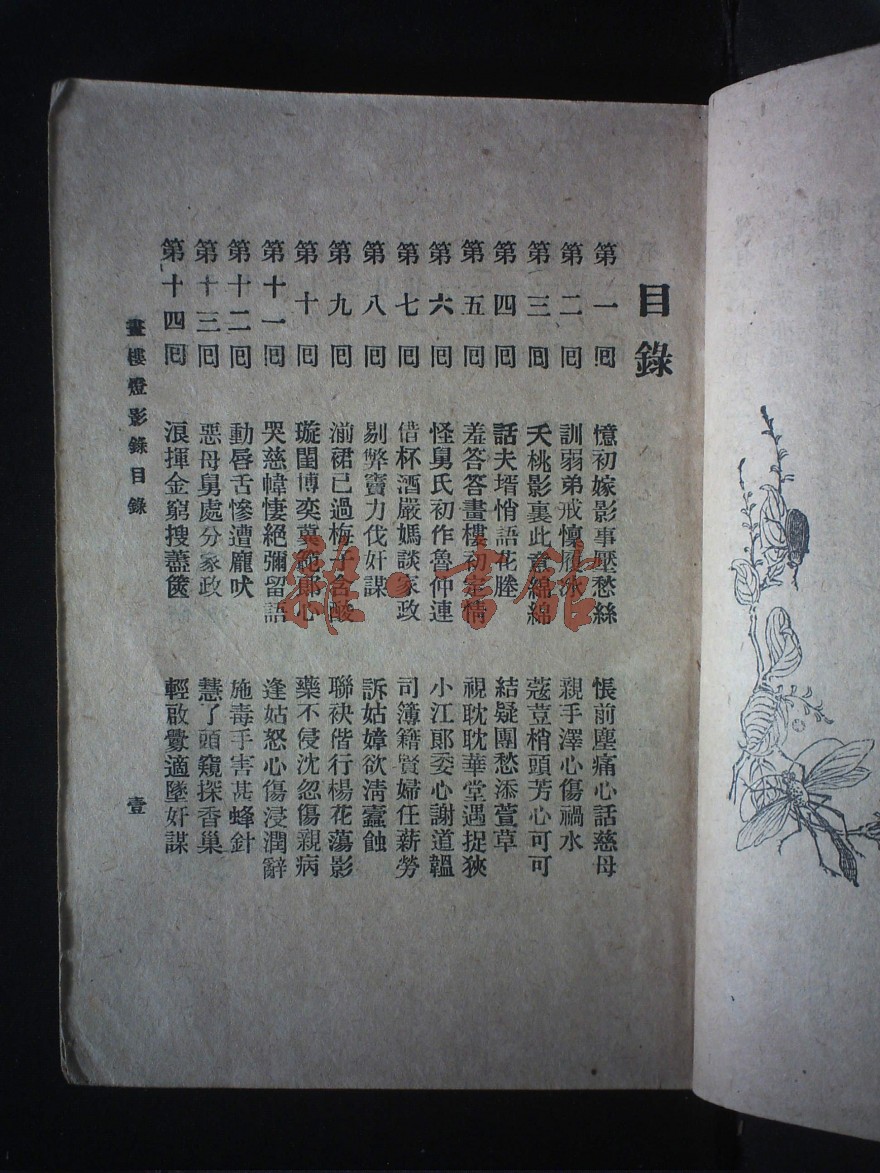 目錄
第一回 憶初嫁影事壓愁絲 悵前塵痛心話慈母
第二回 訓弱弟戒懍履冰 親手澤心傷禍水
第三回 夭桃影裏此意綿綿 蔻荳梢頭芳心可可
第四回 話夫壻悄語花塍 結疑團愁添萱草
第五回 羞答答畫樓初定情 視耽耽華堂遇捉狹
第六回 怪舅氏初作魯仲連 小江郎委心謝道韞
第七回 借杯酒嚴媽談家政 司簿籍賢婦任薪勞
第八回 剔弊竇力伐奸謀 訴姑嫜欲清蠧蝕
第九回 湔裙已過梅子含酸 聯袂偕行楊花蕩影
第十回 璇閨博奕冀範郎心 藥不侵沈忽傷親病
第十一回 哭慈幃悽絕彌留語 逢姑怒心傷浸潤辭
第十二回 動唇舌慘遭龎吠 施毒手害甚蜂針
第十三回 惡母舅處分家政 慧了頭窺探香巢
第十四回 浪揮金窮搜藎篋 輕啟釁適墜奸謀
畫樓燈影錄目錄
壹
雜·書館